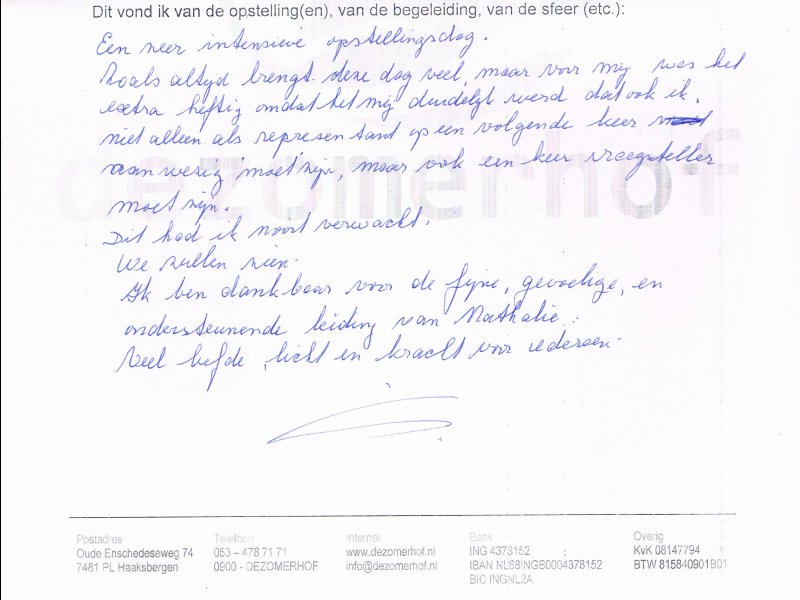 Dit vond ik van de opstelling(en), van de begeleiding, van de sfeer (etc.):
Een zeer intensieve opstellingsdag.
Zoals altyd brengt deze dag veel, maar voor mij was het
extra heftig omdat het mij duidelyk werd dat ook ik,
niet alleen als representant op een volgende keer
aanwezig moet zijn, maar ook een keer vraagsteller
moet zijn.
Dit had ik nooit verwacht.
We zullen zien.
Ik ben dankbaar voor de fijne, gevoelige, en
ondersteunende leiding van Nathalie.
Veel liefde, licht en kracht voor iedereen.
dezomerhof
Postadres
Oude Enschedeseweg 74
7481 PL Haaksbergen
Telefoon
053 – 478 71 71
0900 - DEZOMERHOF
Internet
www.dezomerhof.nl
info@dezomerhof.nl
Bank
ING 4378152
IBAN NL68INGB0004378152
BIC INGNL2A
Overig
KvK 08147794
BTW 815840901B01